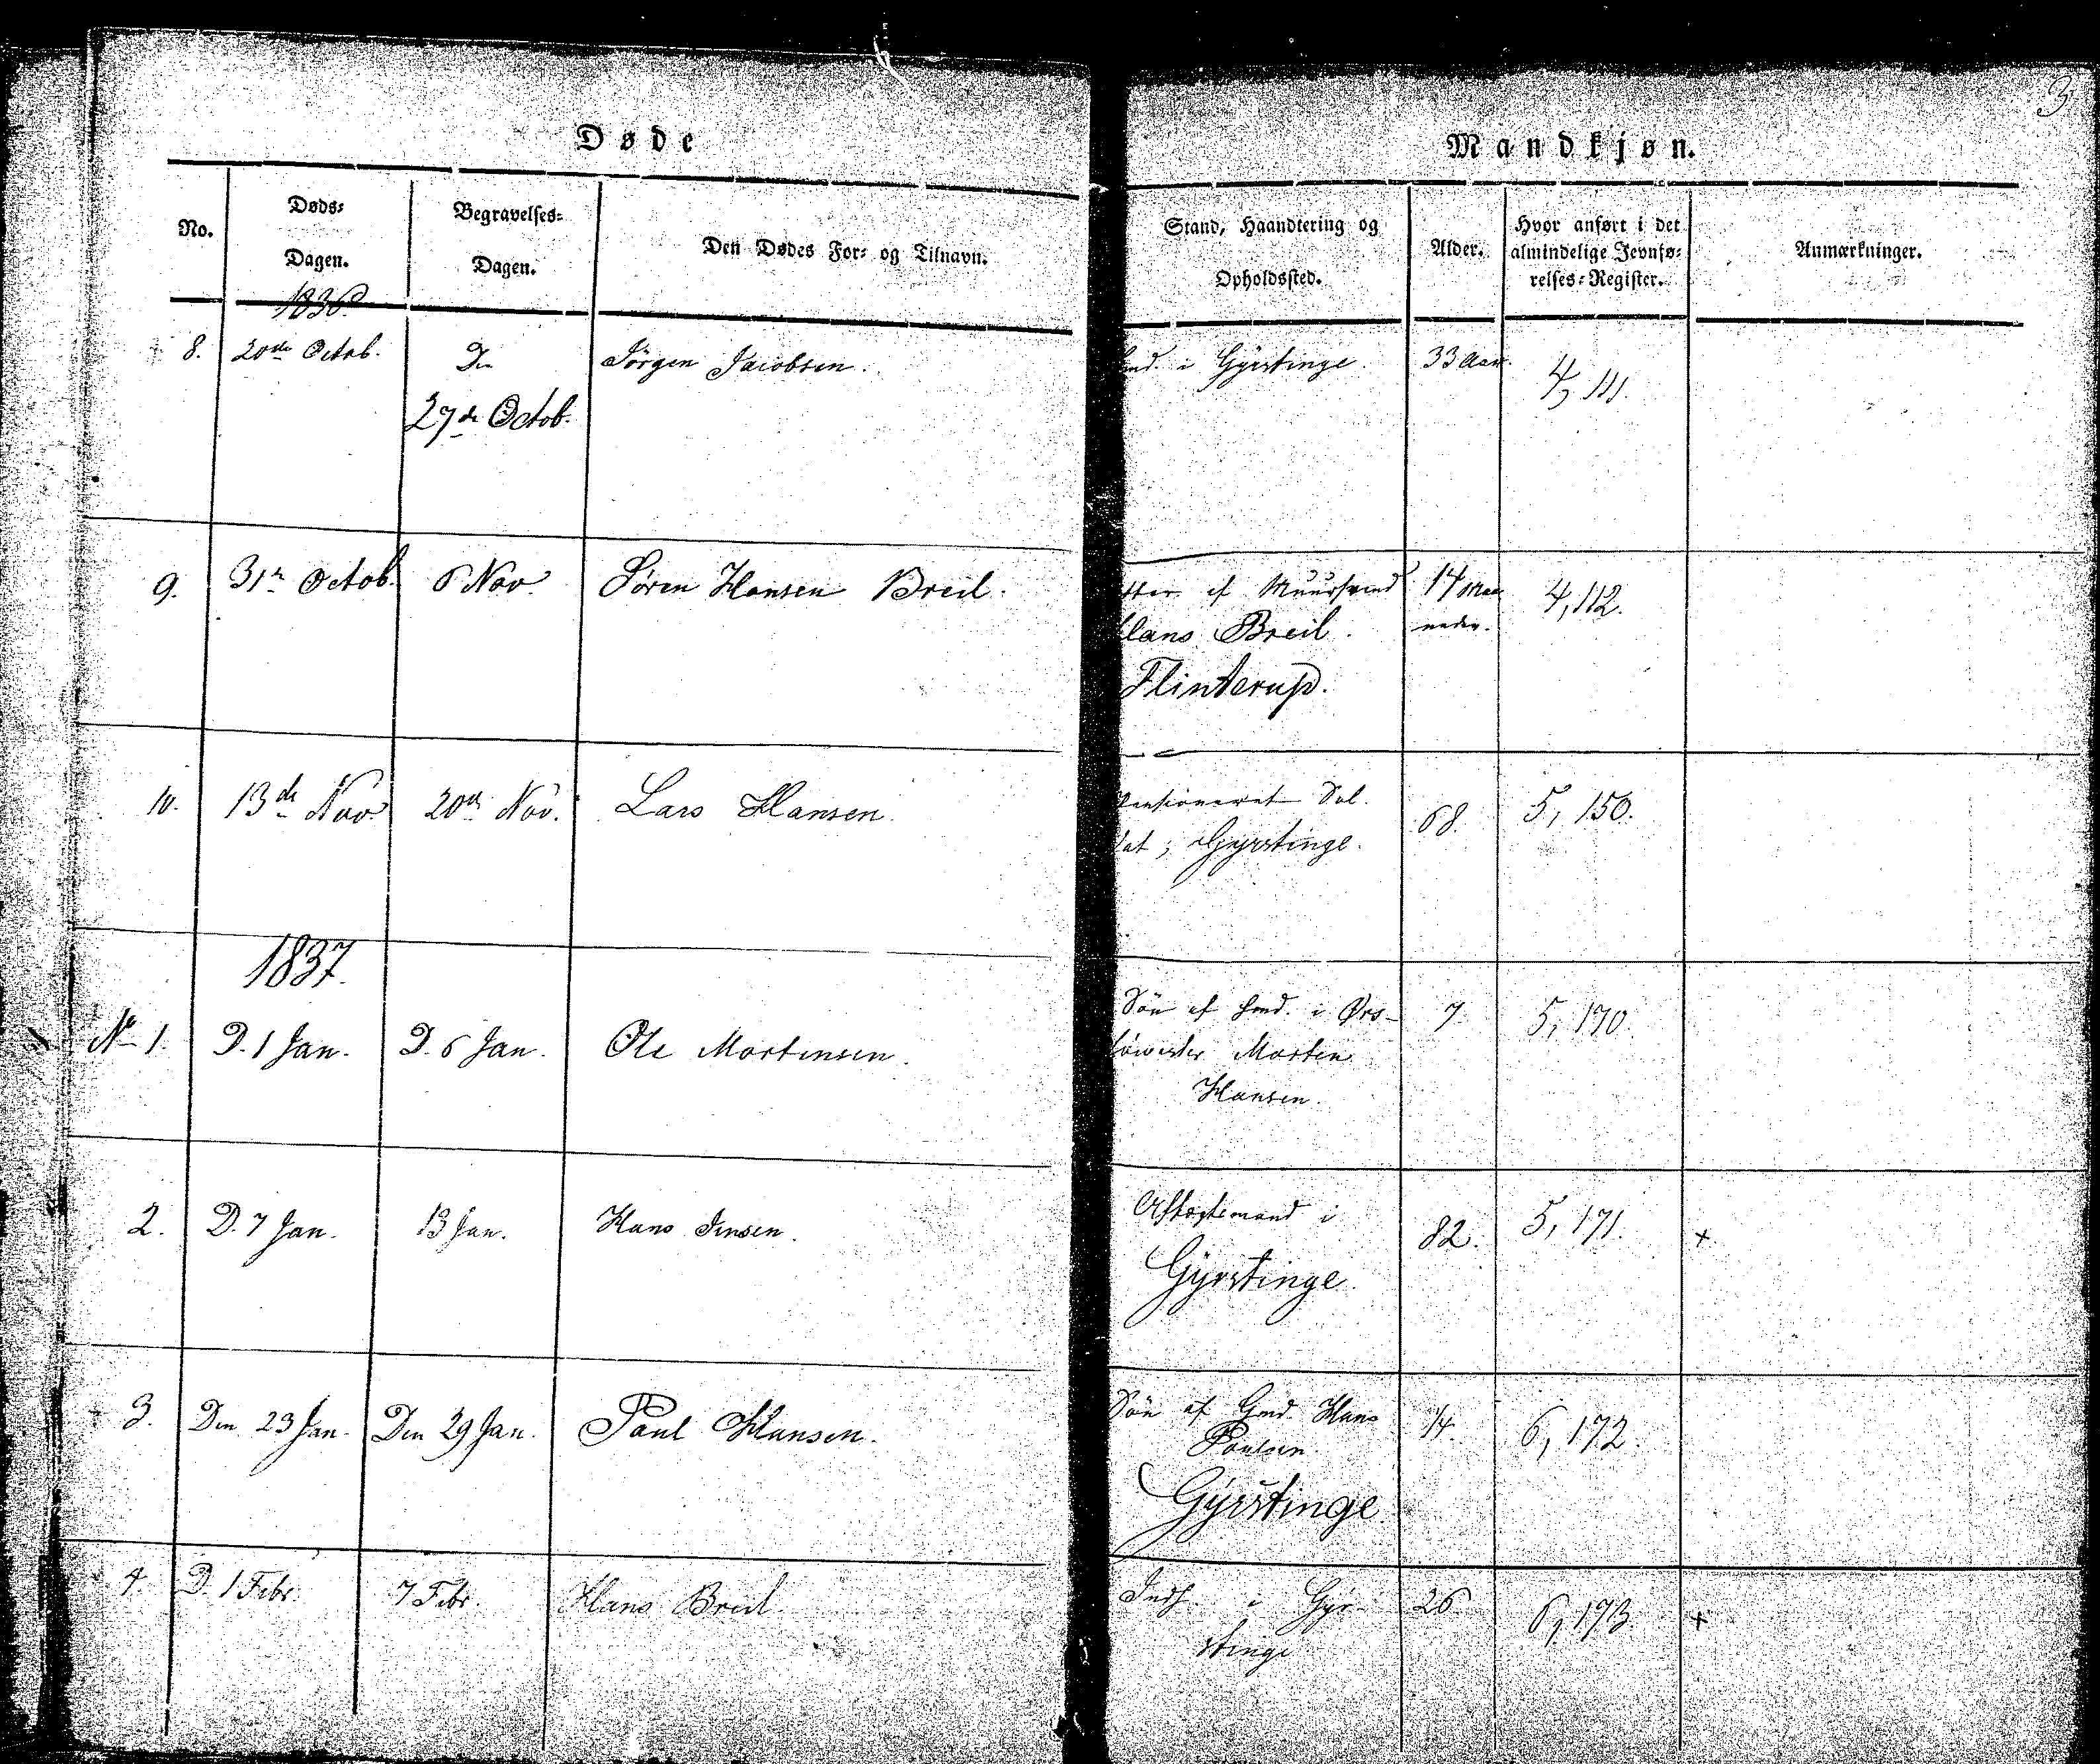 3
Døde
Mandkjøn.
No.
Døds-
Dagen.
Begravelses-
Dagen.
Den Dødes For- og Tilnavn.
Stand, Haandtering og
Opholdssted.
Alder.
Hvor anført i det
almindelige Jevnfø-
relses-Register.
Anmærkninger.
1836
8. 20de Octob. Den Jørgen Jacobsen. i Gyrstinge. 33 Aar. 4, 111.
27de Octob.
9. 31te Octob. 6 Nov. Søren Hansen Breil. af Muursvend 14 Maa 4, 112.
Hans Breil. neder.
Flinterup.
10. 13de Nov. 20de Nov. Lars Hansen. Pensioneret Sol. 68. 5, 150.
dat; Gyrstinge.
1837.
No 1. D. 1 Jan. D. 6 Jan. Ole Mortensen. Søn af i Ørs- 7 5, 170.
løwester Morten
Hansen.
2. D. 7 Jan. 13 Jan. Hans Jensen. Aftægtsmand i 82. 5, 171. +
Gyrstinge
3. Den 23 Jan. Den 29 Jan. Paul Hansen. Søn af Gmd. Hans 6, 172.
Paulsen.
Gyrstinge
4. D. 1 Febr. 7 Febr. Hans Breil. i Gyr- 26 6, 173. +
stinge